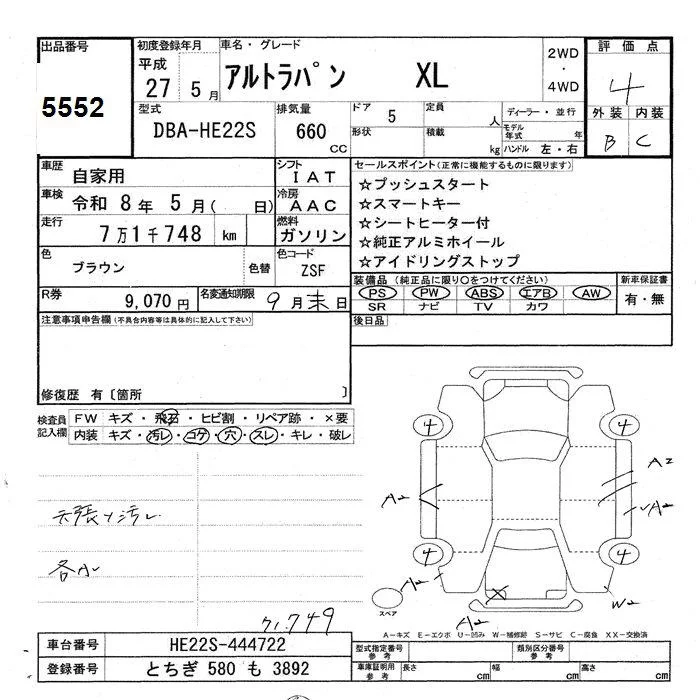 出品番号
5552
初度登録年月
平成
27 5 月
車名・グレード
アルトラパン XL
2WD
・
4WD
評価点
4
外装 内装
B C
型式
DBA-HE22S
排気量
660
CC
ドア
5
定員
人
形状
積載
kg
ディーラー・並行
モデル年式
年
ハンドル 左・右
車歴
自家用
シフト
IAT
車検
令和 8 年 5 月( 日)
冷房
AAC
走行
7万1千748 km
燃料
ガソリン
色
ブラウン
色替
色コード
ZSF
R券
9,070円
名変通知期限
9月末日
セールスポイント(正常に機能するものに限ります)
☆プッシュスタート
☆スマートキー
☆シートヒーター付
☆純正アルミホイール
☆アイドリングストップ
装備品(純正品に限り○をつけてください)
PS PW ABS エアB AW
SR ナビ TV カワ
新車保証書
有・無
後日品
注意事項申告欄(不具合内容等は具体的に記入して下さい)
修復歴 有〔箇所 〕
検査員
記入欄
FW キズ・飛石・ヒビ割・リペア跡・×要
内装 キズ・汚レ・コゲ・穴・スレ・キレ・破レ
天張り汚レ
各小
71.749
4
4
4
4
A2
A2
A2
A2
A2
W2
スペア
A-キズ E-エクボ U-凹み W-補修跡 S-サビ C-腐食 XX-交換済
車台番号
HE22S-444722
登録番号
とちぎ 580 も 3892
型式指定番号
参考
類別区分番号
参考
車庫証明用
参考
長さ
cm
幅
cm
高さ
cm